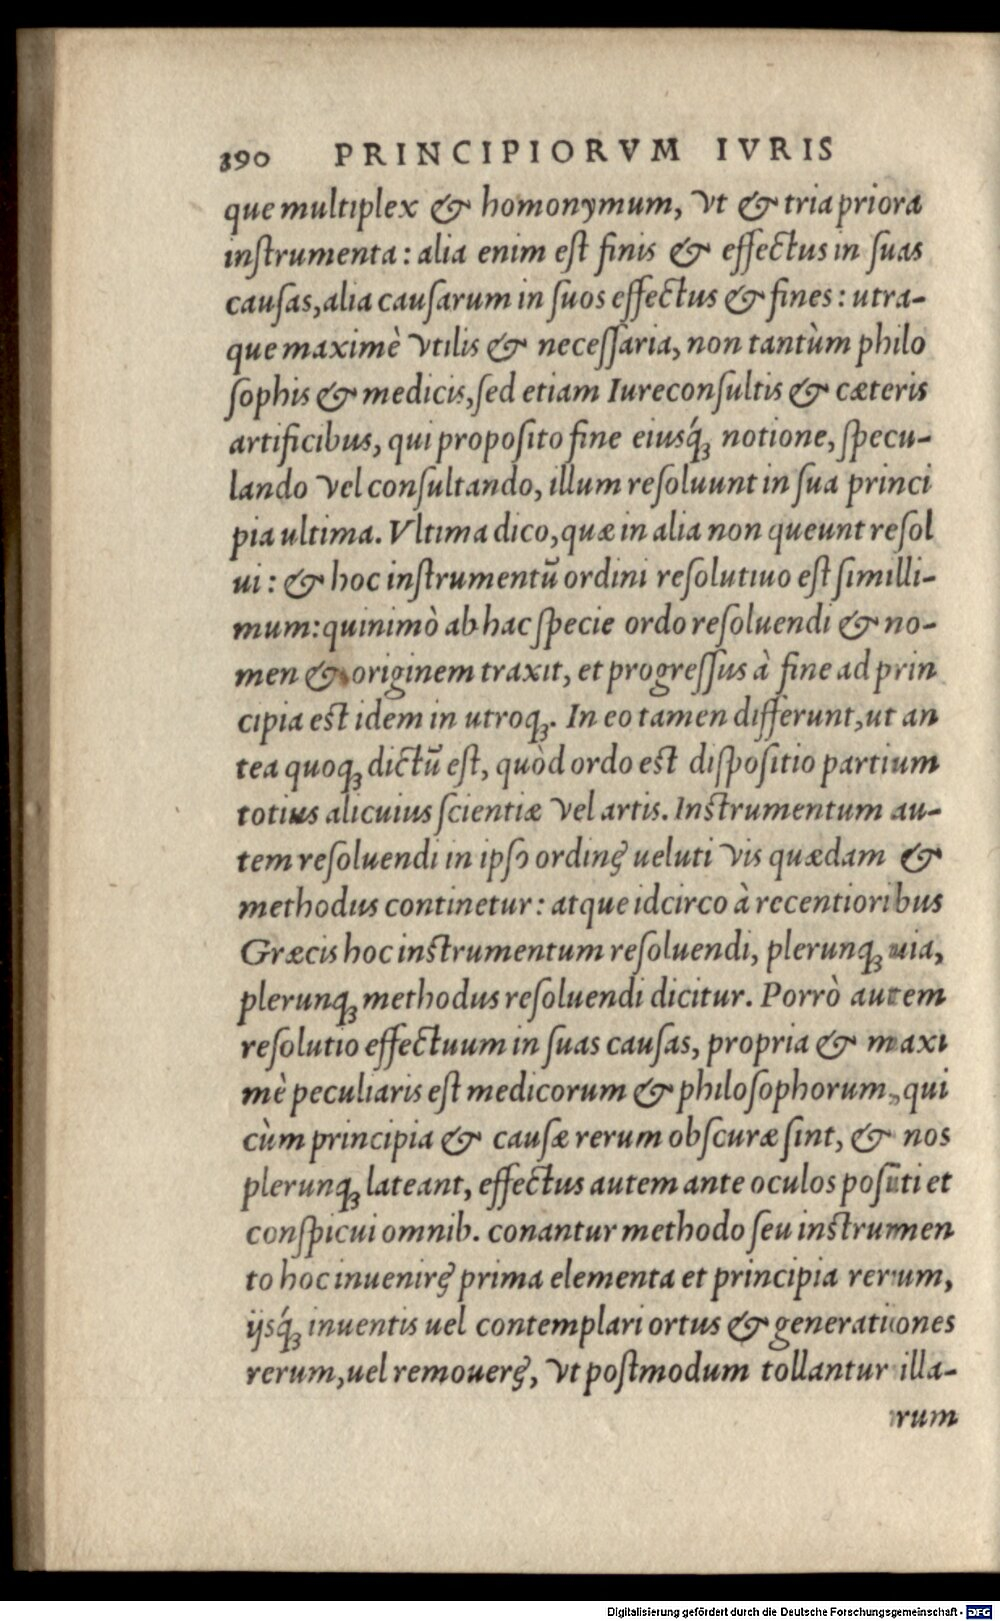 390 PRINCIPIORVM IVRIS
que multiplex & homonymum, vt & tria priora
inſtrumenta: alia enim eſt finis & effectus in ſuas
cauſas, alia cauſarum in ſuos effectus & fines: utra-
que maximè vtilis & neceſſaria, non tantùm philo
ſophis & medicis, ſed etiam Iureconſultis & cæteris
artificibus, qui propoſito fine eiusq́ꝫ notione, ſpecu-
lando vel conſultando, illum reſoluunt in ſua princi
pia ultima. Vltima dico, quæ in alia non queunt reſol
ui: & hoc inſtrumentū ordini reſolutiuo eſt ſimilli-
mum: quinimò ab hac ſpecie ordo reſoluendi & no-
men & originem traxit, et progreſſus à fine ad prin
cipia eſt idem in utroqꝫ. In eo tamen differunt, ut an
tea quoqꝫ dictū eſt, quòd ordo eſt diſpoſitio partium
totius alicuius ſcientiæ vel artis. Inſtrumentum au-
tem reſoluendi in ipſo ordine, ueluti vis quædam &
methodus continetur: atque idcirco à recentioribus
Græcis hoc inſtrumentum reſoluendi, plerunqꝫ uia,
plerunqꝫ methodus reſoluendi dicitur. Porrò autem
reſolutio effectuum in ſuas cauſas, propria & maxi
mè peculiaris eſt medicorum & philoſophorum, qui
cùm principia & cauſæ rerum obſcuræ ſint, & nos
plerunqꝫ lateant, effectus autem ante oculos poſiti et
conſpicui omnib. conantur methodo ſeu inſtrumen
to hoc inuenire prima elementa et principia rerum,
ijsq́ꝫ inuentis uel contemplari ortus & generationes
rerum, uel remouere, vt poſtmodum tollantur illa-
rum
Digitalisierung gefördert durch die Deutsche Forschungsgemeinschaft - DFG